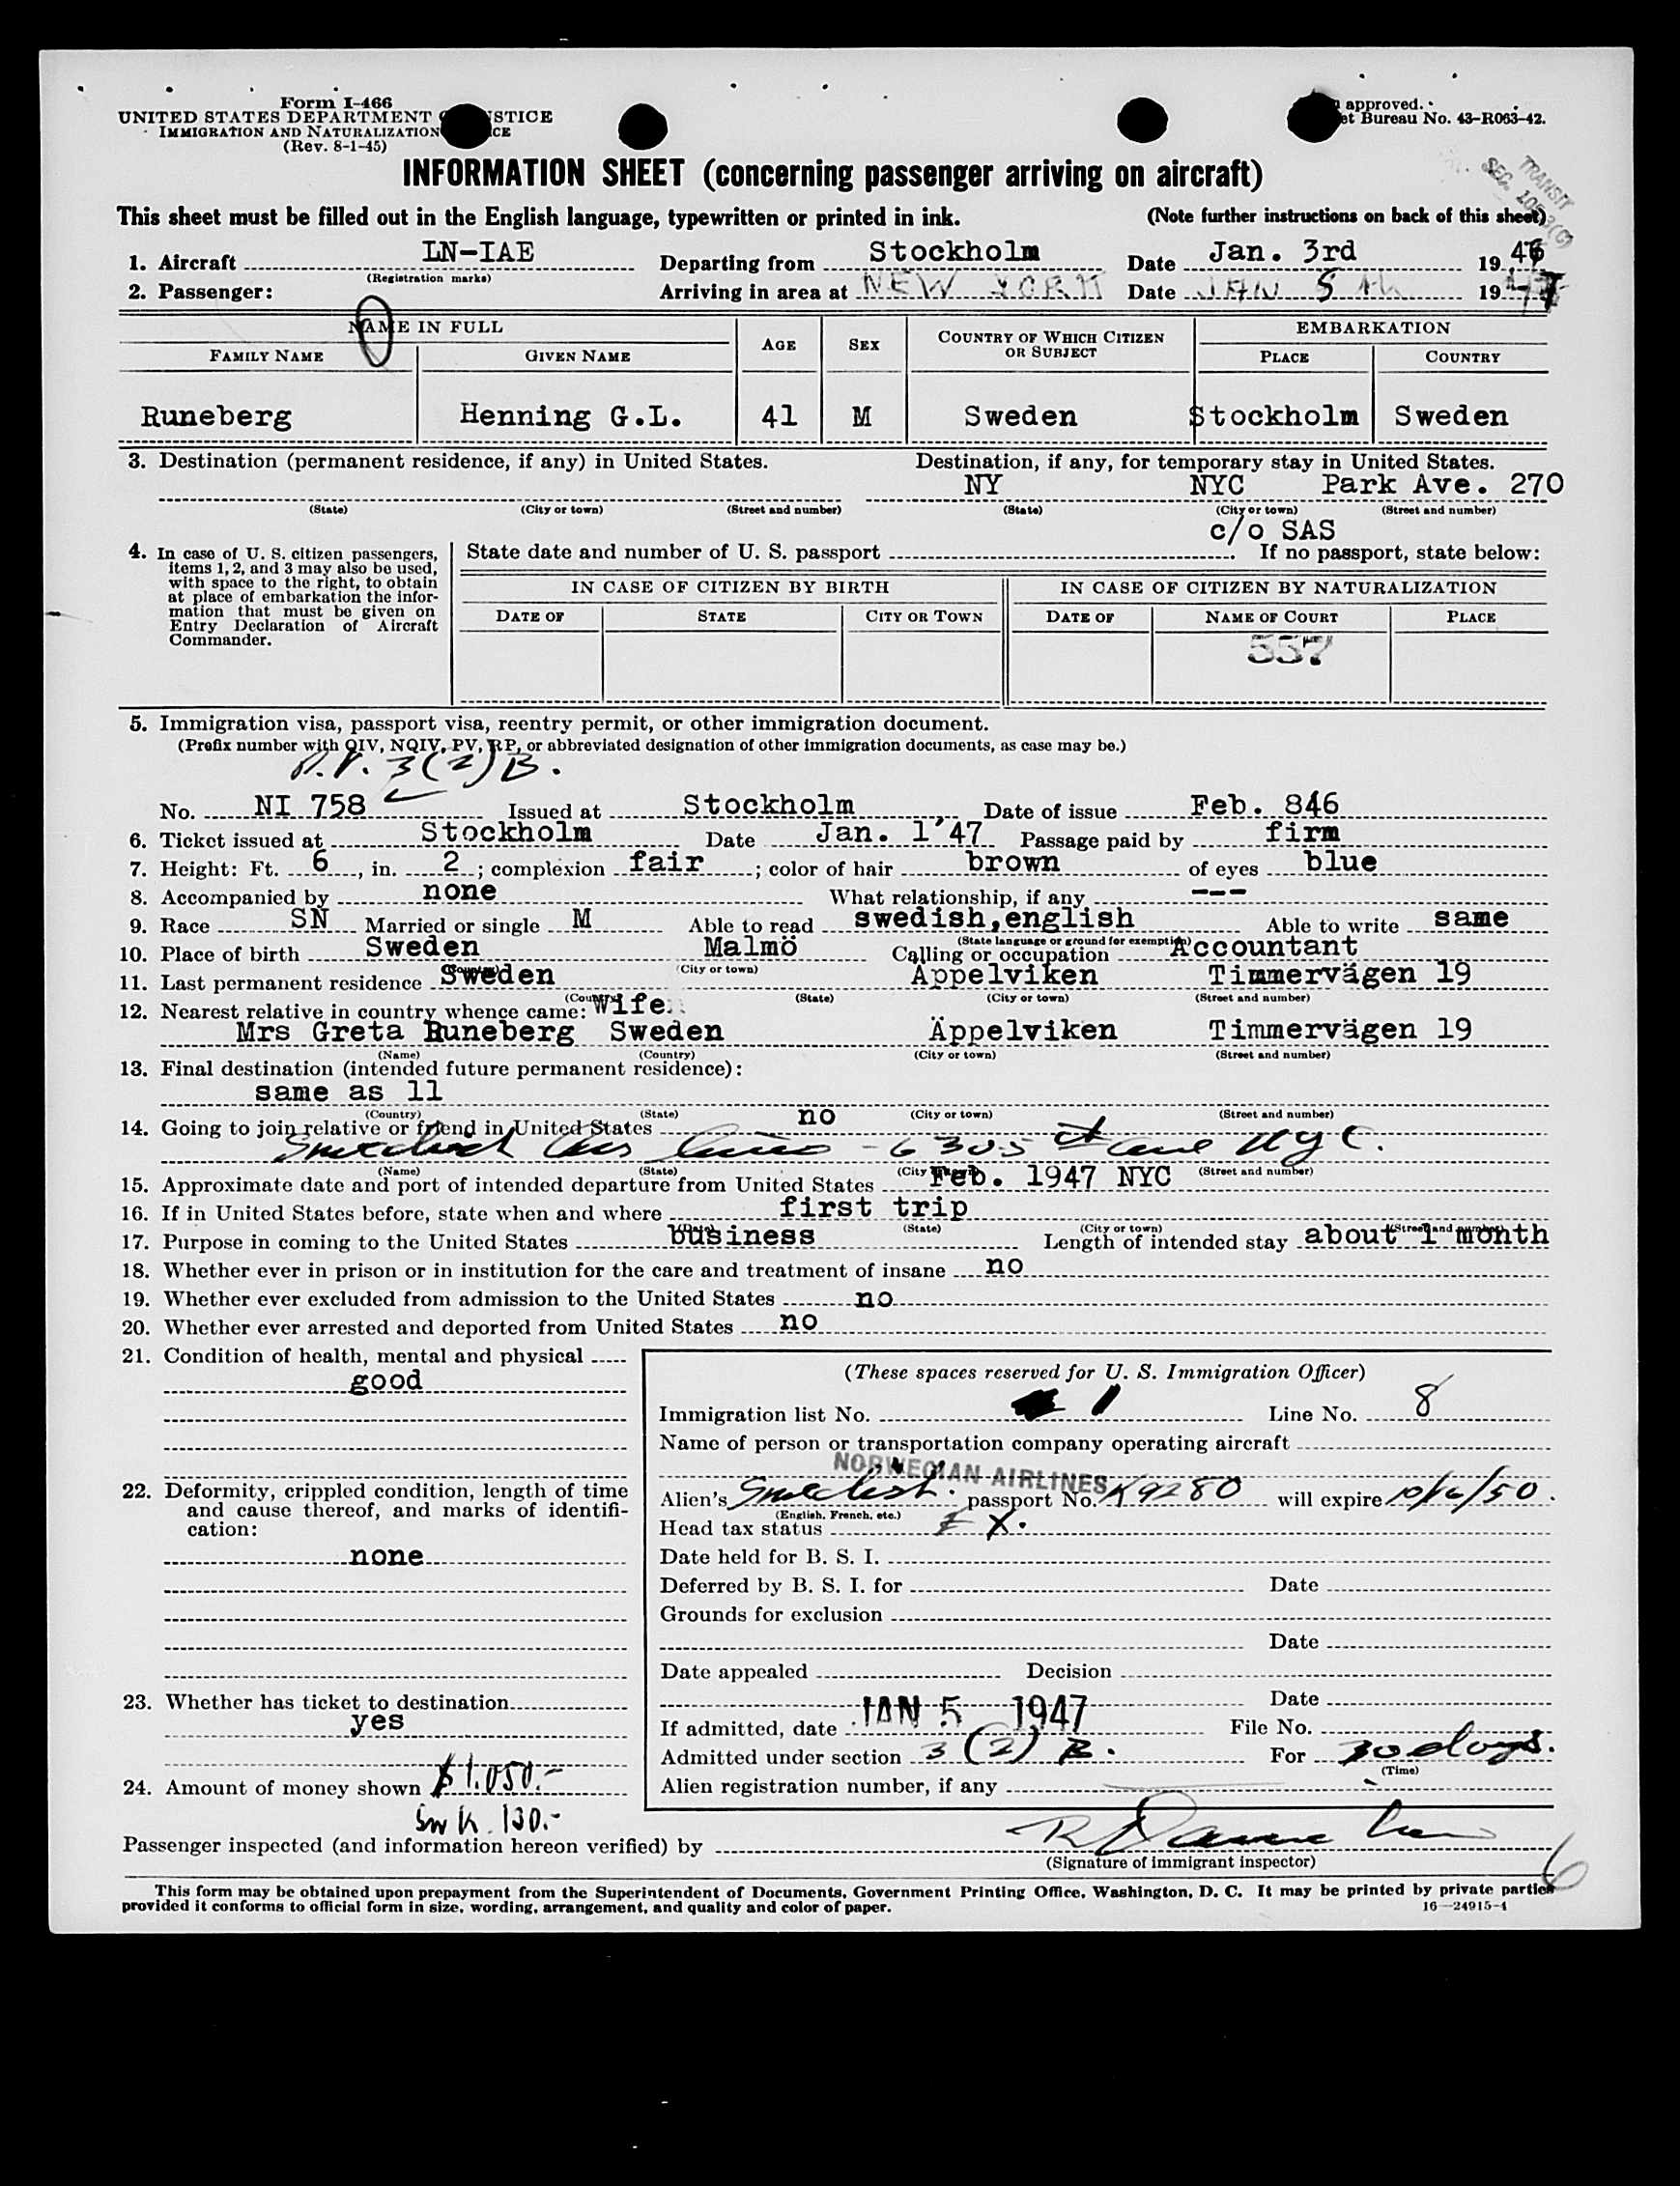 Form I-466
UNITED STATES DEPARTMENT STICE
IMMIGRATION AND NATURALIZATION CE
(Rev. 8-1-45)
approved.
et Bureau No. 43-R063-42.
INFORMATION SHEET (concerning passenger arriving on aircraft)
TRANSIT
SEC.
This sheet must be filled out in the English language, typewritten or printed in ink. (Note further instructions on back of this sheet)
1. Aircraft LN-IAE Departing from Stockholm Date Jan. 3rd 19
(Registration marks)
2. Passenger: Arriving in area at NEW YORK Date JAN 5 19 47
NAME IN FULL
FAMILY NAME GIVEN NAME AGE SEX COUNTRY OF WHICH CITIZEN OR SUBJECT EMBARKATION PLACE COUNTRY
Runeberg Henning G.L. 41 M Sweden Stockholm Sweden
3. Destination (permanent residence, if any) in United States. Destination, if any, for temporary stay in United States.
NY NYC Park Ave. 270
(State) (City or town) (Street and number) (State) (City or town) (Street and number)
c/o SAS
4. In case of U. S. citizen passengers, items 1, 2, and 3 may also be used, with space to the right, to obtain at place of embarkation the information that must be given on Entry Declaration of Aircraft Commander.
State date and number of U. S. passport If no passport, state below:
IN CASE OF CITIZEN BY BIRTH IN CASE OF CITIZEN BY NATURALIZATION
DATE OF STATE CITY OR TOWN DATE OF NAME OF COURT PLACE
557
5. Immigration visa, passport visa, reentry permit, or other immigration document.
(Prefix number with QIV, NQIV, PV, RP, or abbreviated designation of other immigration documents, as case may be.)
P.V. 3(2)B.
No. NI 758 Issued at Stockholm Date of issue Feb. 846
6. Ticket issued at Stockholm Date Jan. 1'47 Passage paid by firm
7. Height: Ft. 6, in. 2; complexion fair; color of hair brown of eyes blue
8. Accompanied by none What relationship, if any ---
9. Race SN Married or single M Able to read swedish,english Able to write same
(State language or ground for exemption)
10. Place of birth Sweden Malmö Calling or occupation Accountant
(Country) (City or town)
11. Last permanent residence Sweden Äppelviken Timmervägen 19
(Country) (State) (City or town) (Street and number)
12. Nearest relative in country whence came: Wife
Mrs Greta Runeberg Sweden Äppelviken Timmervägen 19
(Name) (Country) (City or town) (Street and number)
13. Final destination (intended future permanent residence):
same as 11
(Country) (State) (City or town) (Street and number)
14. Going to join relative or friend in United States no
Swedish Air Lines - 630 5th ave NYC.
(Name) (State) (City or town) (Street and number)
15. Approximate date and port of intended departure from United States Feb. 1947 NYC
16. If in United States before, state when and where first trip
(Date) (State) (City or town) (Street and number)
17. Purpose in coming to the United States business Length of intended stay about 1 month
18. Whether ever in prison or in institution for the care and treatment of insane no
19. Whether ever excluded from admission to the United States no
20. Whether ever arrested and deported from United States no
21. Condition of health, mental and physical
good
22. Deformity, crippled condition, length of time and cause thereof, and marks of identification:
none
23. Whether has ticket to destination
yes
24. Amount of money shown $1.050.-
Sw K. 130.-
(These spaces reserved for U. S. Immigration Officer)
Immigration list No. 1 Line No. 8
Name of person or transportation company operating aircraft
NORWEGIAN AIRLINES
Alien's Swedish passport No. K9280 will expire 10/6/50.
(English, French, etc.)
Head tax status EX.
Date held for B. S. I.
Deferred by B. S. I. for Date
Grounds for exclusion
Date
Date appealed Decision
Date
If admitted, date JAN 5 1947 File No.
Admitted under section 3 (2) B. For 30 days.
(Time)
Alien registration number, if any
Passenger inspected (and information hereon verified) by
(Signature of immigrant inspector)
6
This form may be obtained upon prepayment from the Superintendent of Documents, Government Printing Office, Washington, D. C. It may be printed by private parties
provided it conforms to official form in size, wording, arrangement, and quality and color of paper. 16—24915-1